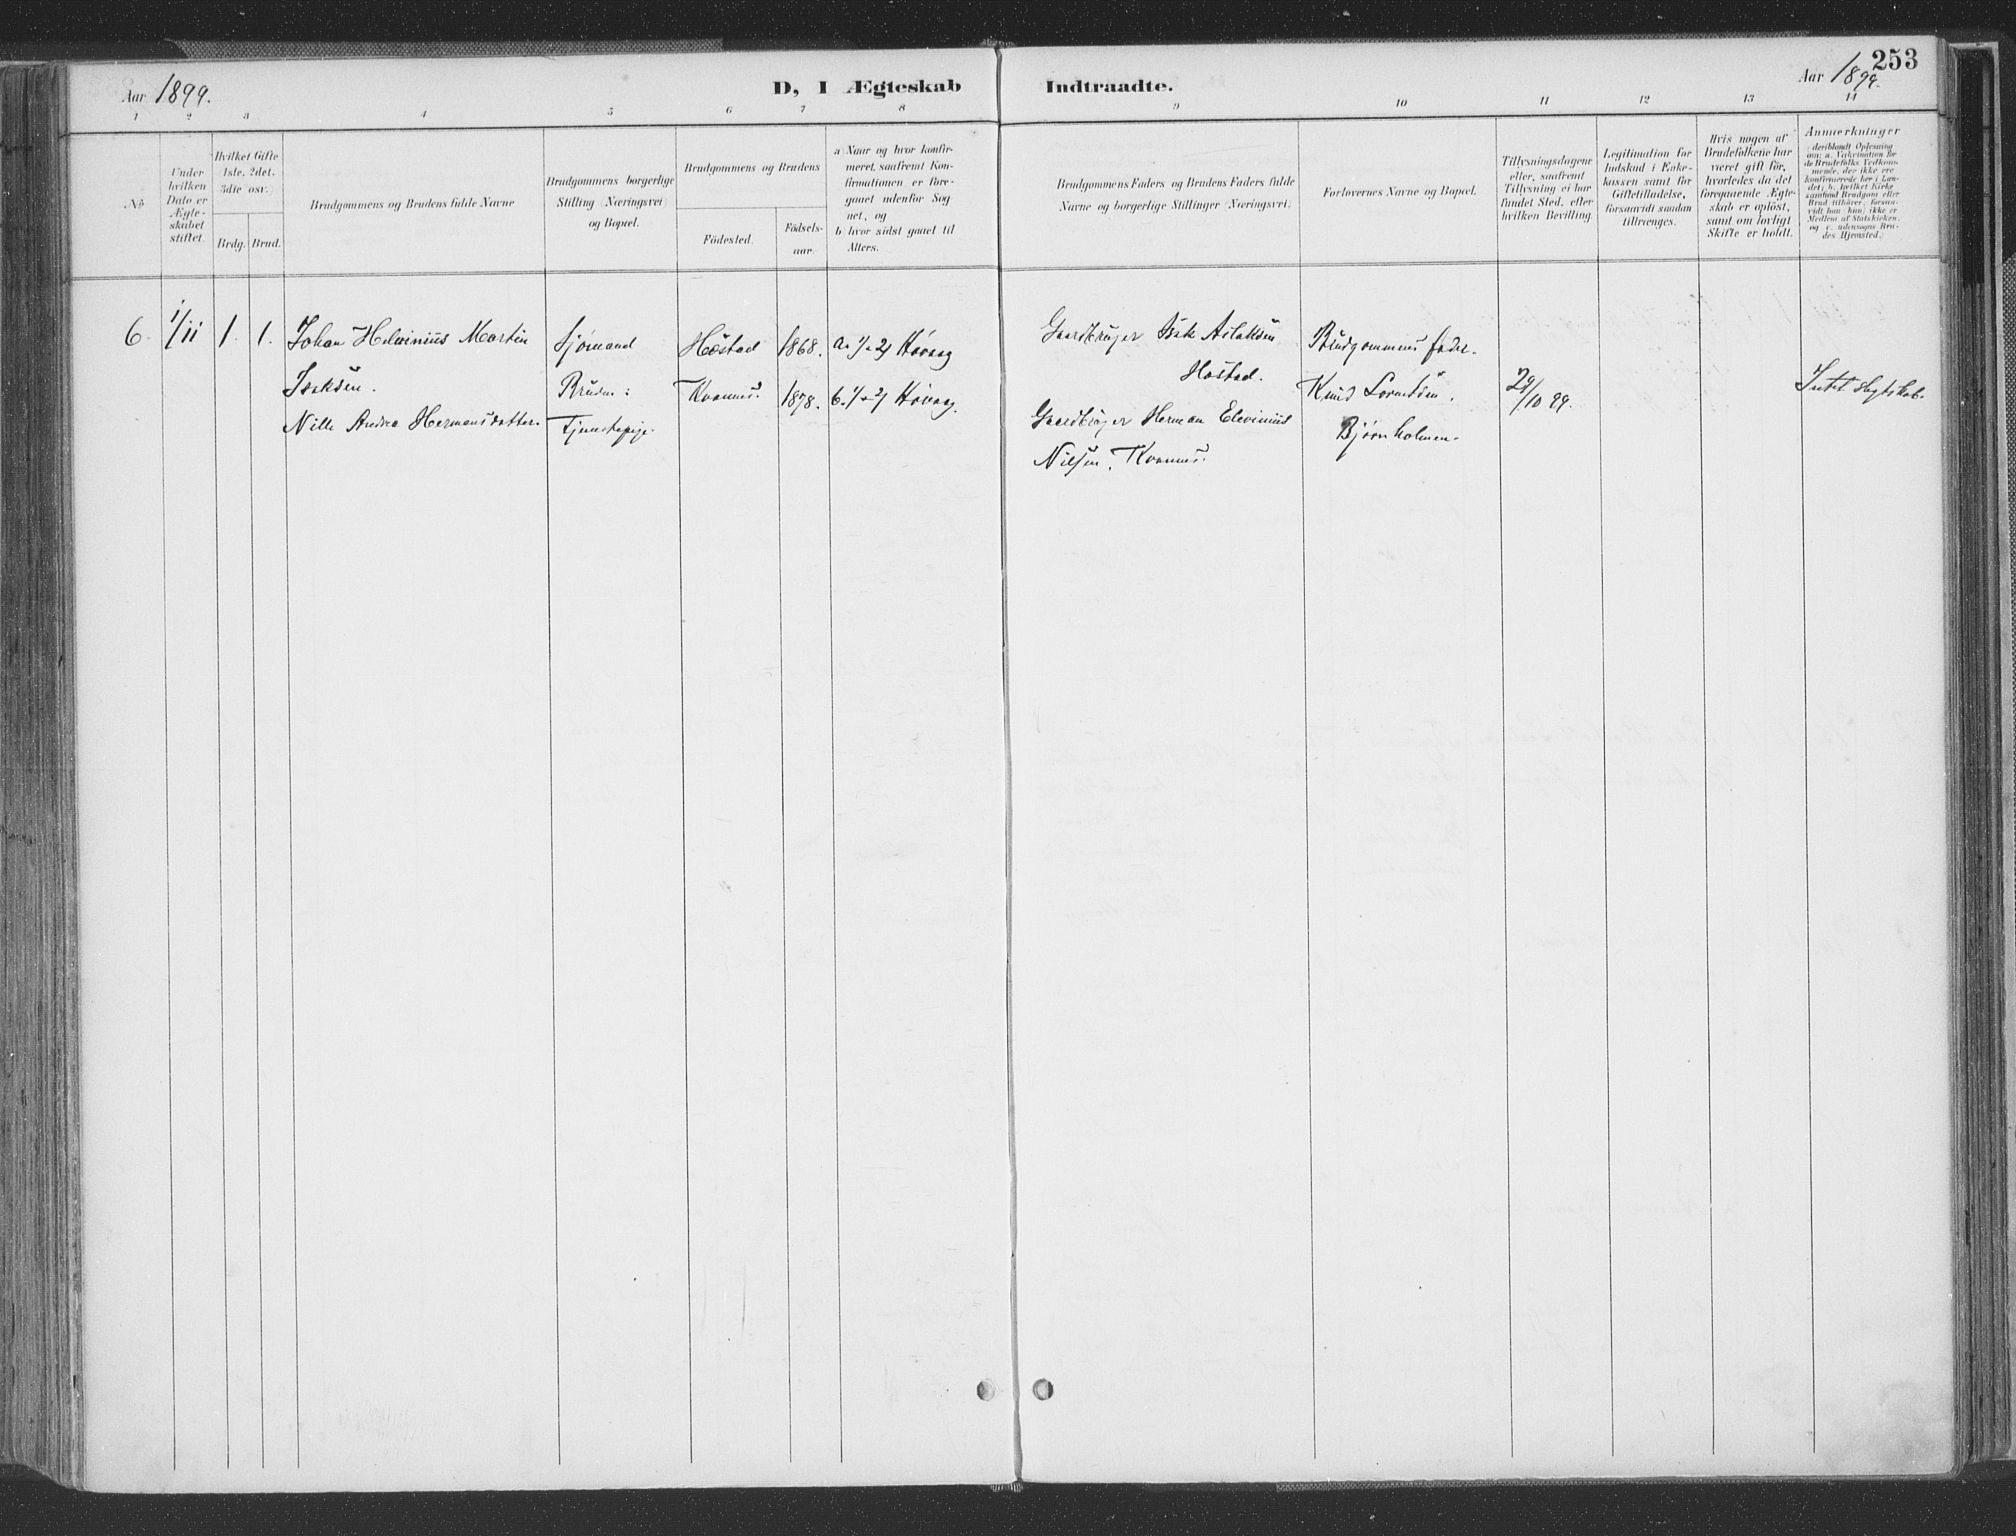 Aar 1899.
D, I Ægteskab
Indtraadte.
Aar 1899.
253
1 2 3 4 5 6 7 8 9 10 11 12 13 14
No
Under hvilken Dato er Ægteskabet stiftet.
Hvilket Gifte 1ste, 2det, 3die osv.
Brdg. Brud.
Brudgommens og Brudens fulde Navne
Brudgommens borgerlige Stilling (Næringsvei) og Bopæl.
Brudgommens og Brudens
Födested.
Födsels-aar.
a) Naar og hvor konfirmeret, saafremt Konfirmationen er foregaaet udenfor Sognet, og
b) hvor sidst gaaet til Alters.
Brudgommens Faders og Brudens Faders fulde Navne og borgerlige Stillinger (Næringsvei).
Forlovernes Navne og Bopæl.
Tillysningsdagene eller, saafremt Tillysning ei har fundet Sted, efter hvilken Bevilling.
Legitimation for Indskud i Enkekassen samt for Giftetilladelse, forsaavidt saadan tiltrænges.
Hvis nogen af Brudefolkene har været gift för, hvorledes da det foregaaende Ægteskab er oplöst, samt om lovligt Skifte er holdt.
Anmærkninger
(deriblandt Oplysning om: a. Vakcination for de Brudefolks Vedkommende, der ikke ere konfirmerede her i Landet; b. hvilket Kirkesamfund Brudgom eller Brud tilhörer, forsaavidt han (hun) ikke er Medlem af Statskirken, og c. udensogns Brudes Hjemsted.)
6 1/11 1. 1. Johan Helvinius Martin
Isaksen.
Nille Andrea Hermansdatter.
Sjømand
Bruden:
Tjenestepige.
Høstad 1868.
Kvannes 1878.
a. Høvaag
b. Høvaag.
Gaardbruger Isak Aslaksen
Høstad.
Gaardbruger Herman Elevinius
Nilsen, Kvannes.
Brudgommens fader.
Knud Lorentsen,
Bjørnholmen.
29/10 99.
Intet slegtskab.